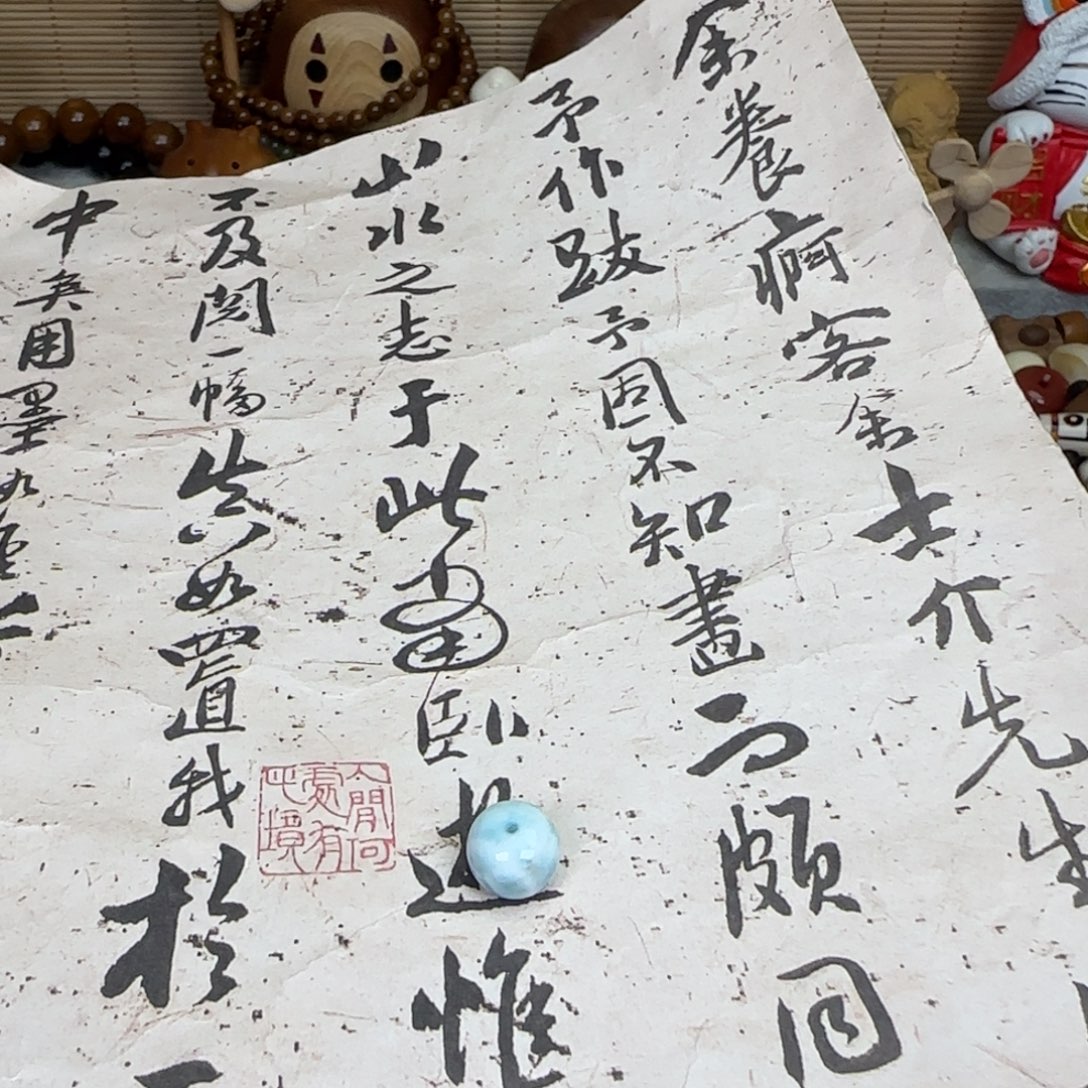 余養痾客舍士介先生
予作跋予固不知畫而頗同
山水之志于此當臥遊惟
不及閱一幡如置我於
中矣用墨如
人間何處有此境